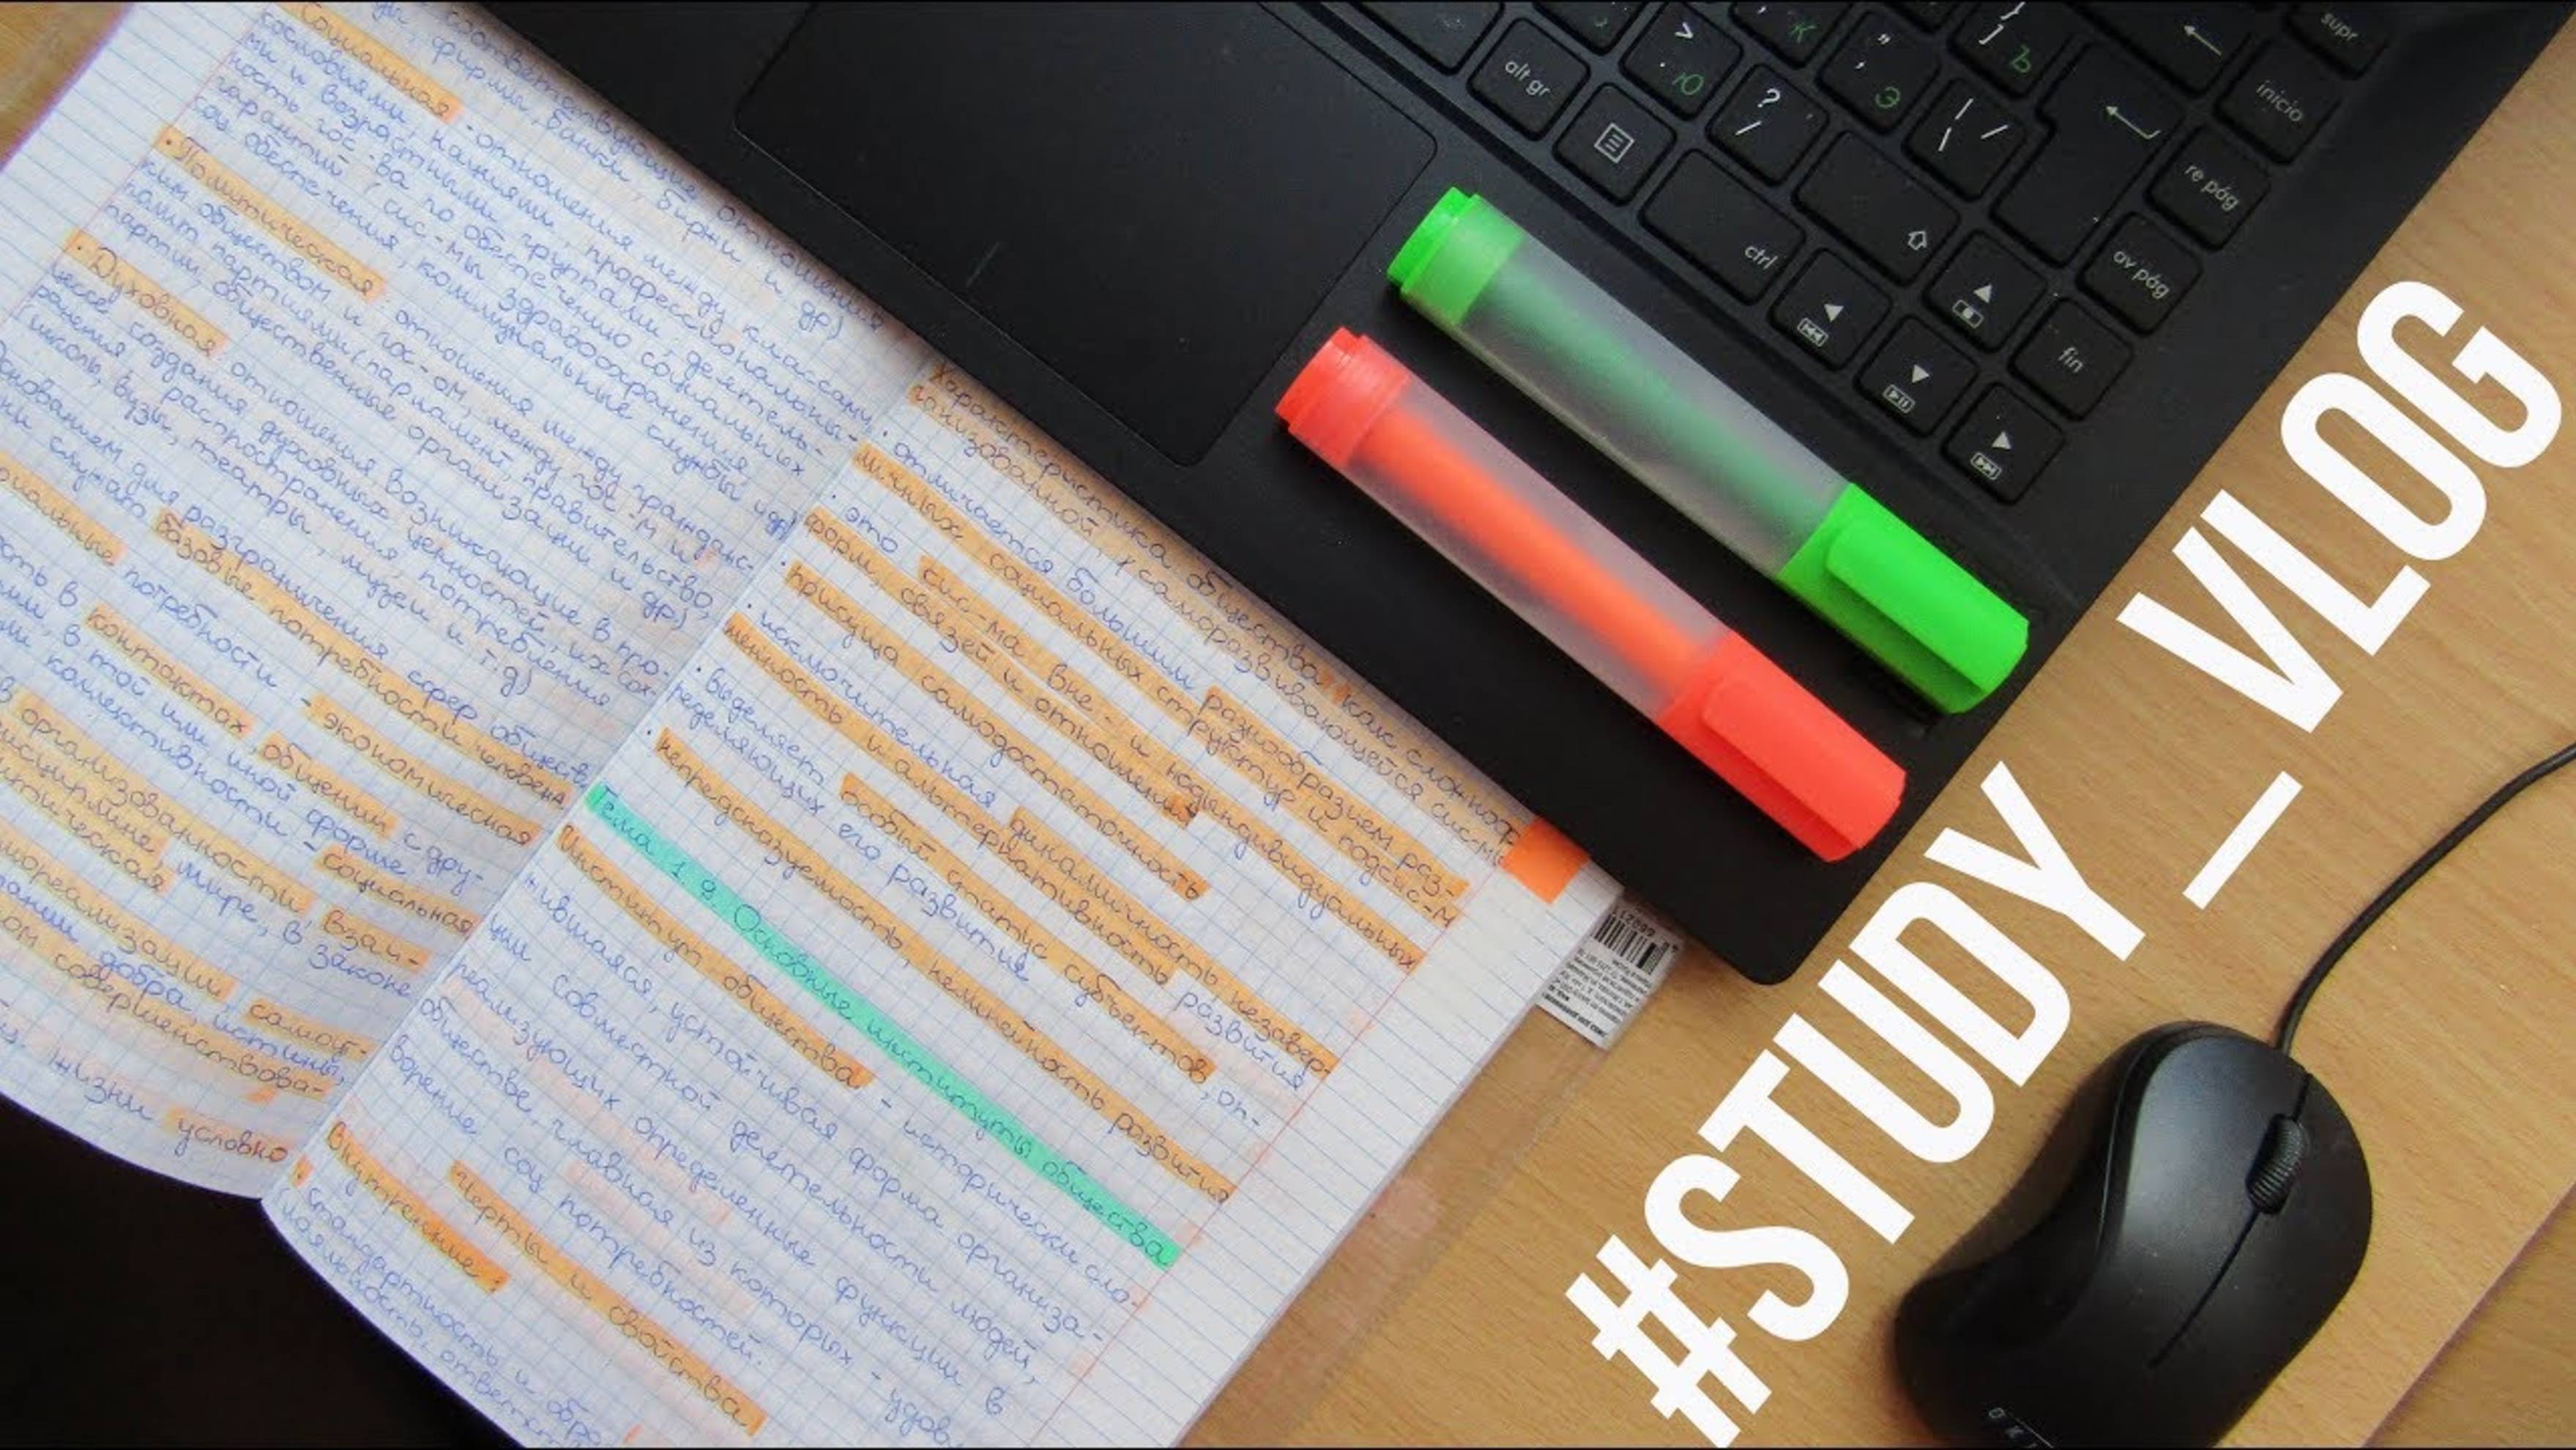 ды, соответствующие отношения
фирмы, банки, биржи и др)
Социальная - отношения между классами,
сословиями, нациями, профессиональны-
ми и возрастными группами, деятель-
ность гос-ва по обеспечению социальных
гарантий (сис-мы здравоохранения,
соц обеспечения, коммунальные службы и др)
• Политическая: отношения между гражданс-
ким обществом и гос-ом, между гос-м и
полит. партиями (парламент, правительство,
партии, общественные организации и др)
• Духовная: отношения, возникающие в про-
цессе создания духовных ценностей, их сох-
ранения, распространения, потребления
(школы, вузы, театры, музеи и т.д)
Основанием для разграничения сфер обществ.
служат базовые потребности человека
потребности - экономическая
в контактах, общении с дру-
в той или иной форме
коллективности - социальная
в организованности, взаи-
дисциплине, мире, в законе
самореализации, самоут-
добра, истины,
совершенствова-
жизни условно
Характеристика общества как сложноор-
ганизованной, саморазвивающейся сис-мы
• отличается большим разнообразием раз-
личных социальных структур и подсис-м
• это сис-ма вне- и надындивидуальных
форм, связей и отношений
• присуща самодостаточность
• исключительная динамичность, незавер-
шенность и альтернативность развития
• выделяет особый статус субъектов, оп-
ределяющих его развитие
• непредсказуемость, нелинейность развития
Тема 1.2. Основные институты общества
Институт общества - исторически сло-
жившаяся, устойчивая форма организа-
ции совместной деятельности людей,
реализующих определенные функции в
обществе, главная из которых - удов-
ворение соц потребностей.
Черты и свойства
Внутренние:
• стандартность и
alt gr
Ю
Ж
Э
Ъ
?
ctrl
supr
inicio
re pág
av pág
fin
#STUDY_VLOG